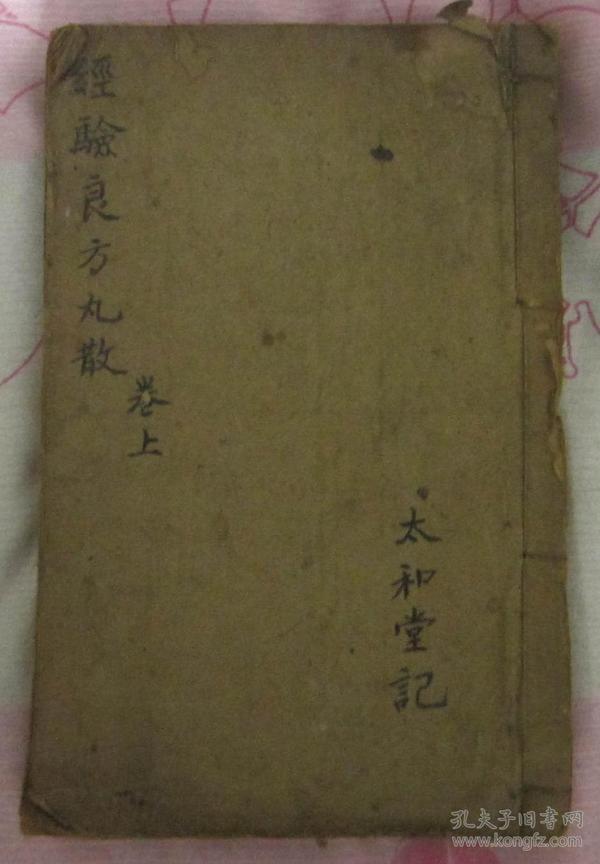 經驗良方丸散
卷上
太和堂記
孔夫子旧书网
www.kongfz.com